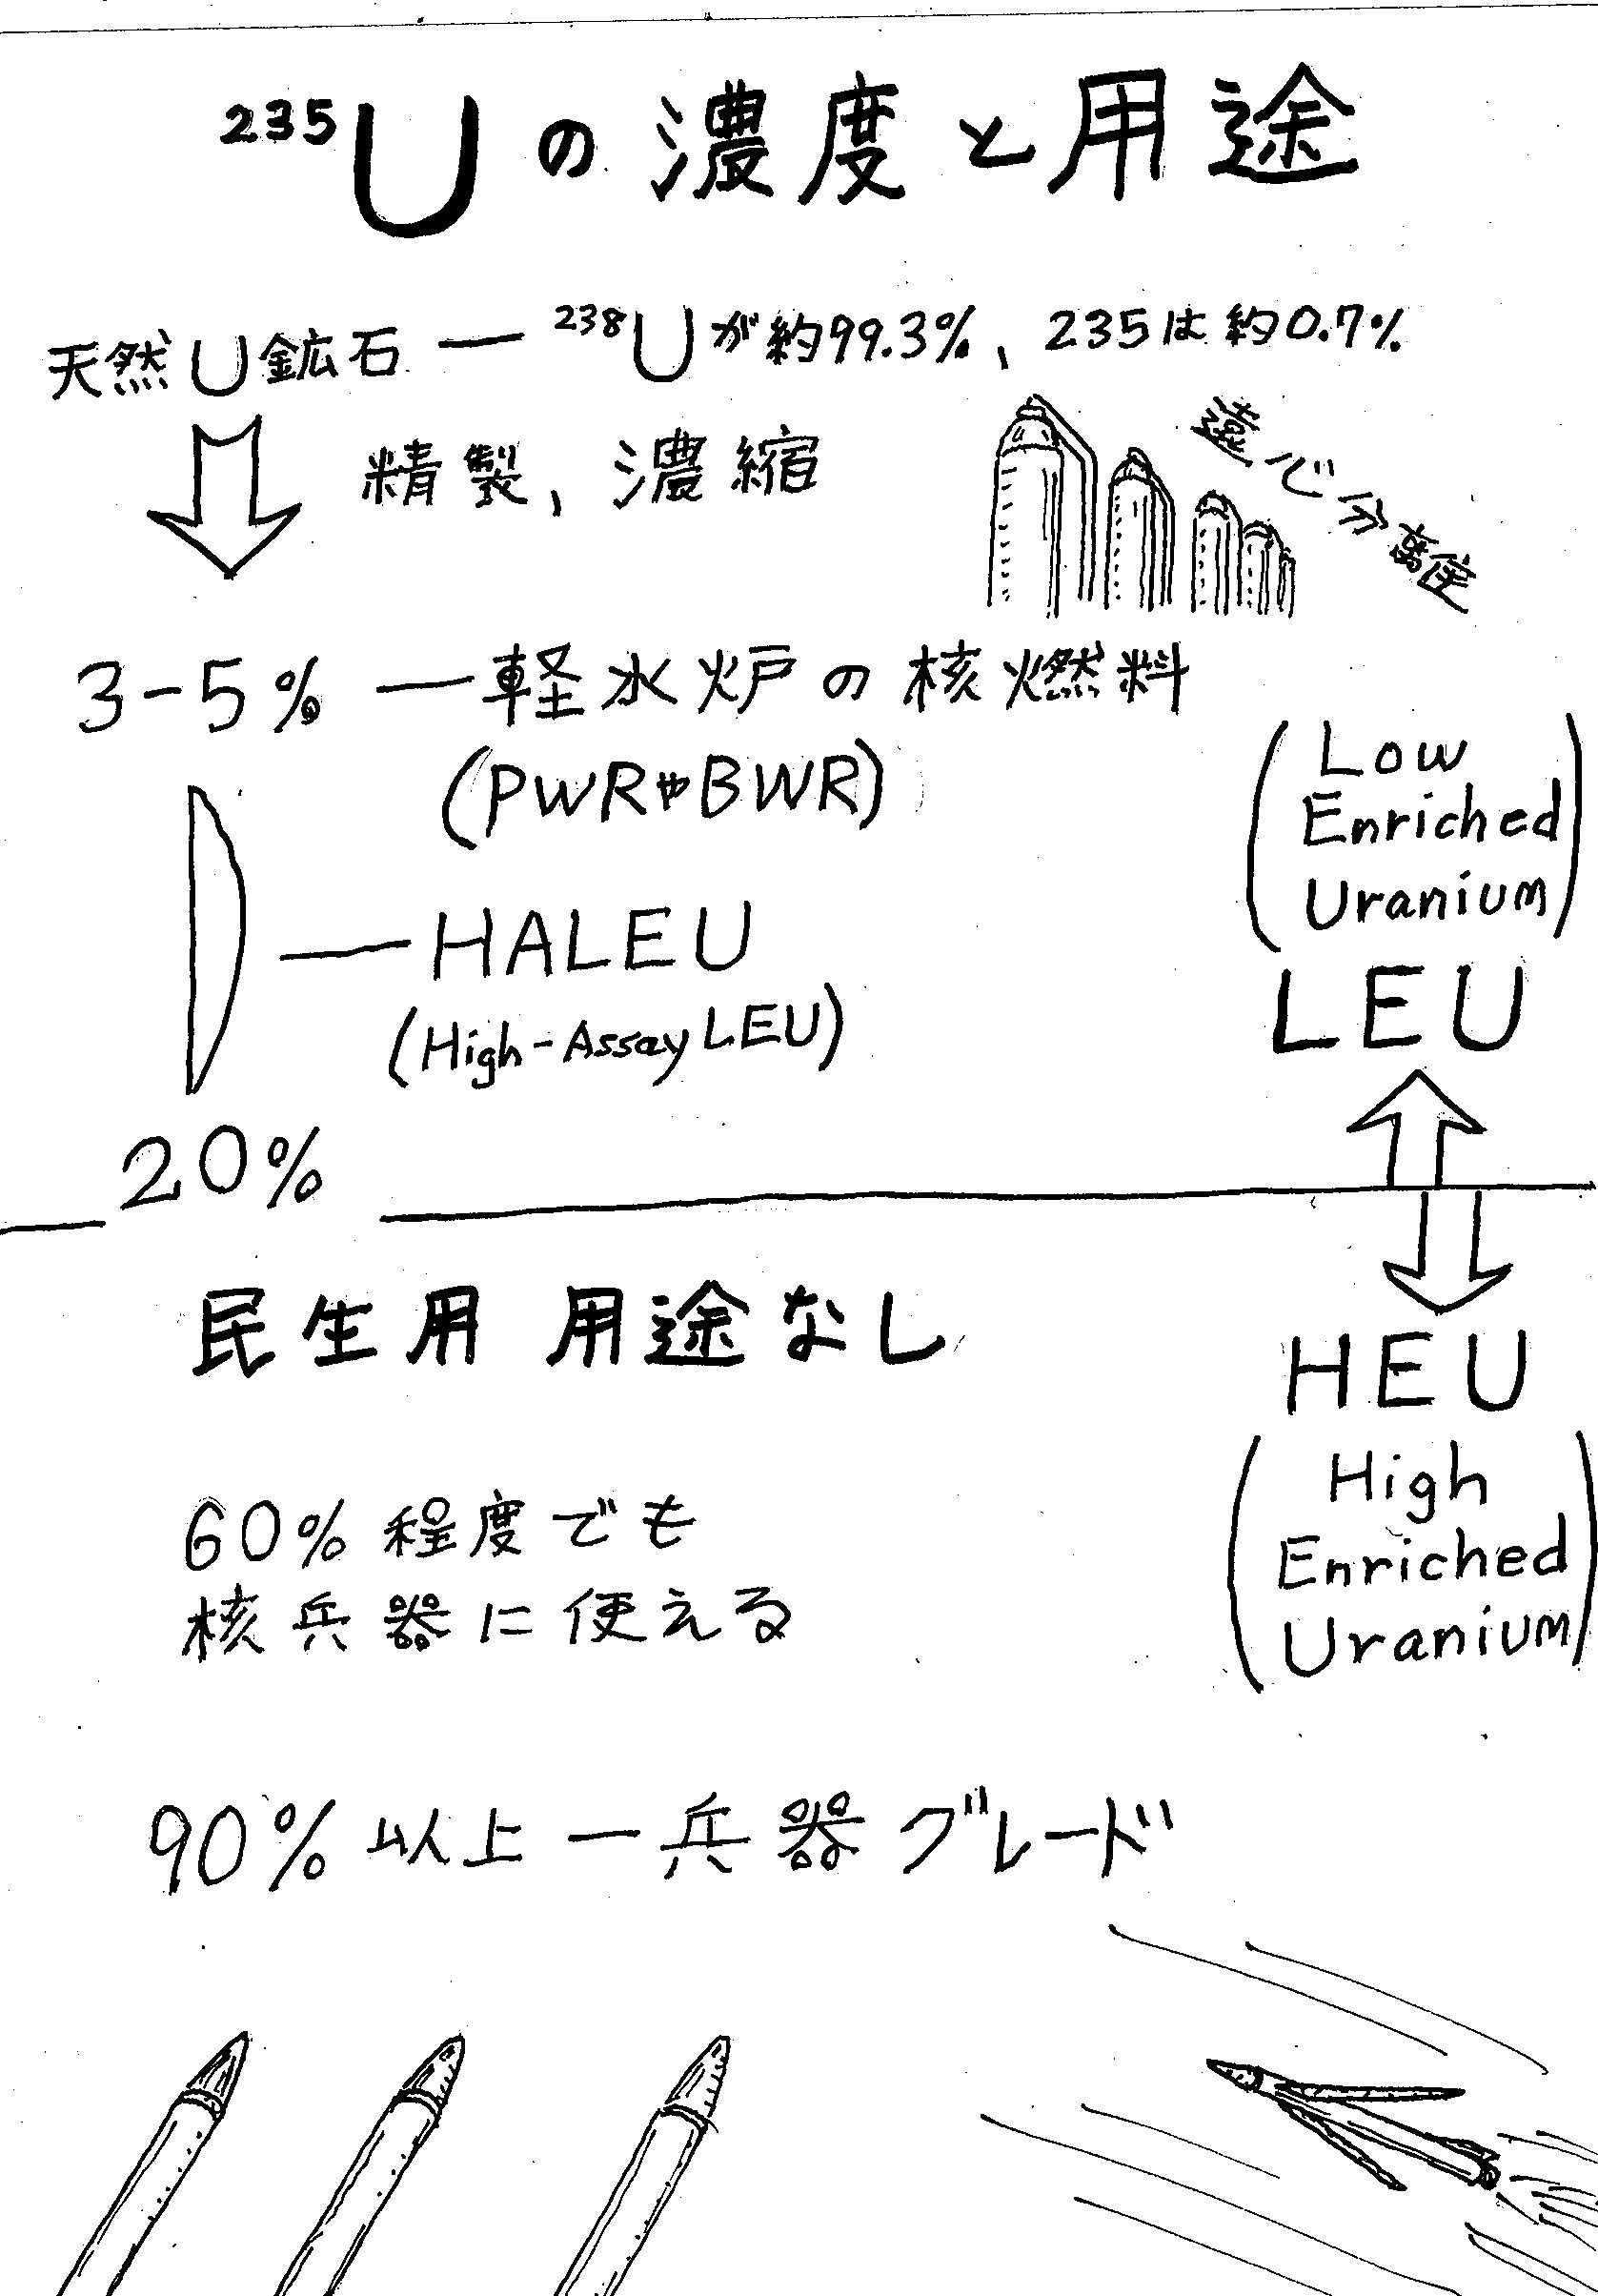 ²³⁵Uの濃度と用途
天然U鉱石 ― ²³⁸Uが約99.3%、235は約0.7%
精製、濃縮
遠心で分離
3-5% ― 軽水炉の核燃料
(PWRやBWR)
(Low
Enriched
Uranium)
LEU
― HALEU
(High-Assay LEU)
20%
HEU
(High
Enriched
Uranium)
民生用 用途なし
60%程度でも
核兵器に使える
90%以上 ― 兵器グレード